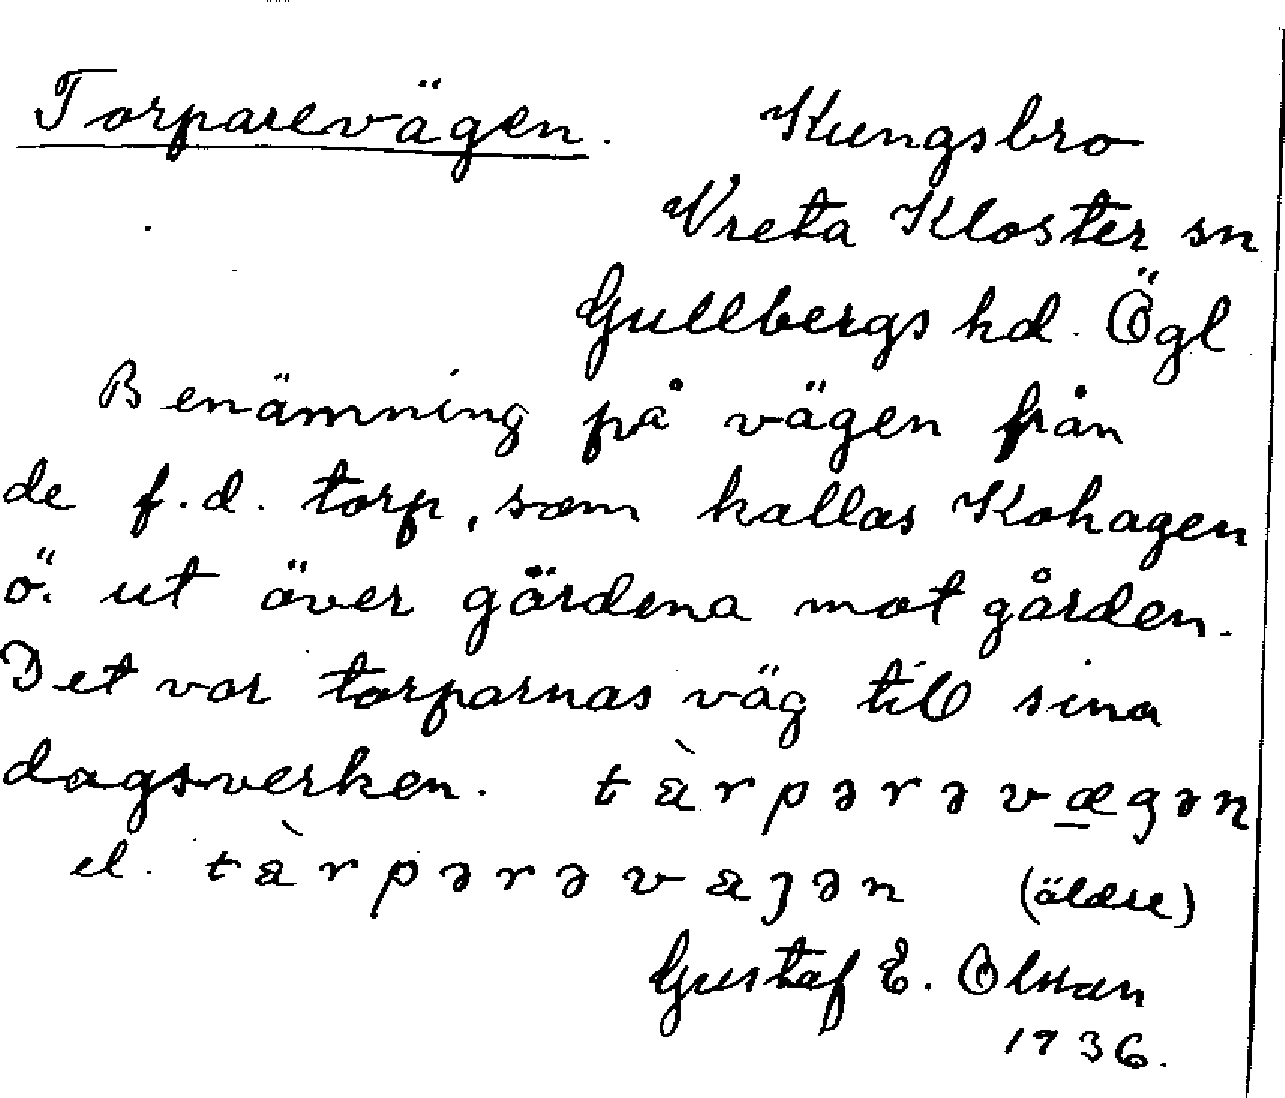 Torparevägen.
Kungsbro
Vreta Kloster sn
Gullbergs hd. Ögl
Benämning på vägen från
de f.d. torp, som kallas Kohagen
ö. ut över gärdena mot gården.
Det var torparnas väg till sina
dagsverken. tàrpərəvægən
el. tàrpərəvaȷən (äldre)
Gustaf E. Olsson
1936.